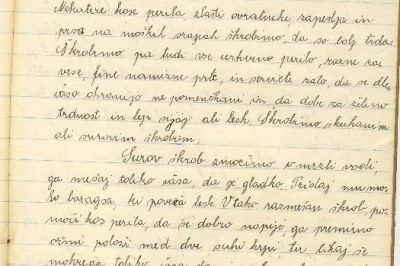 Nekatere kose perila, zlasti ovratnike, zapestja in
prsa na moških srajcah škrobimo, da so bolj trda.
Škrobimo pa tudi vse cerkveno perilo, razne za
vese, fine namizne prte, in serviete zato, da se dlje
časa ohranijo ne pomečkani in da dobe za želeno
trdnost in lep sijaj ali lesk. Škrobimo s kuhanim
ali surovim škrobom.
Surov škrob zmočimo v mrzli vodi,
ga mešaj toliko časa, da je gladko. Pridaj mu ma
lo boraksa, ki poveča lesk. V tako razmešan škrob, po
moči kos perila, da se dobro napije, ga premišno
ožmi položi med dve suhi krpi ter likaj še
mokrega toliko časa, da